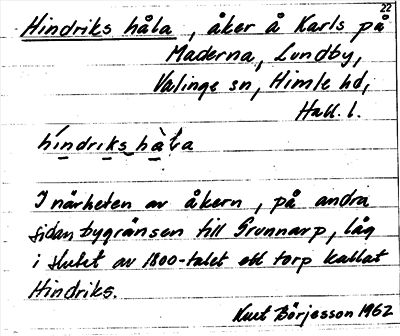 22
Hindriks håla, åker å Karls på
Maderna, Lundby,
Valinge sn, Himle hd,
Hall. l.
híndriks hàla
I närheten av åkern, på andra
sidan bygränsen till Grunnarp, låg
i slutet av 1800-talet ett torp kallat
Hindriks.
Kurt Börjesson 1962